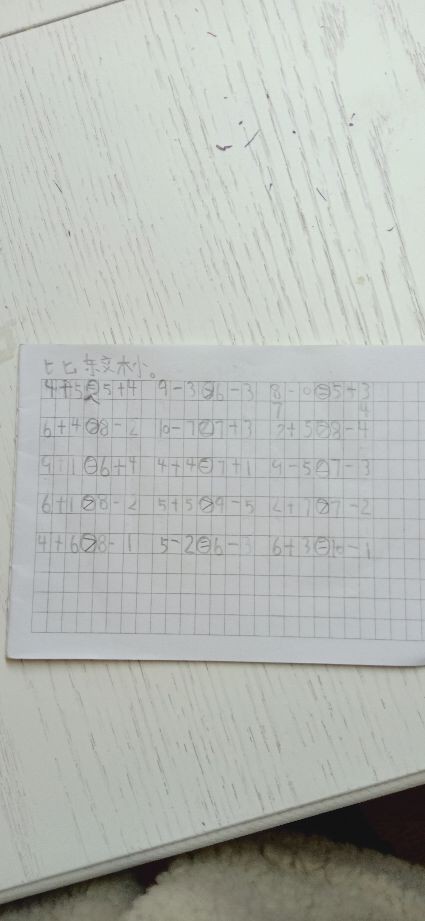 比比杂交大小。
4+5=5+4 9-3>6-3 8-0=5+3
7 4
6+4>8-2 10-7 7+3 2+5>8-4
9+1=6+4 4+4=7+1 9-5=7-3
6+1>8-2 5+5>9-5 2+7>7-2
4+6>8-1 5-2=6-3 6+3=10-1